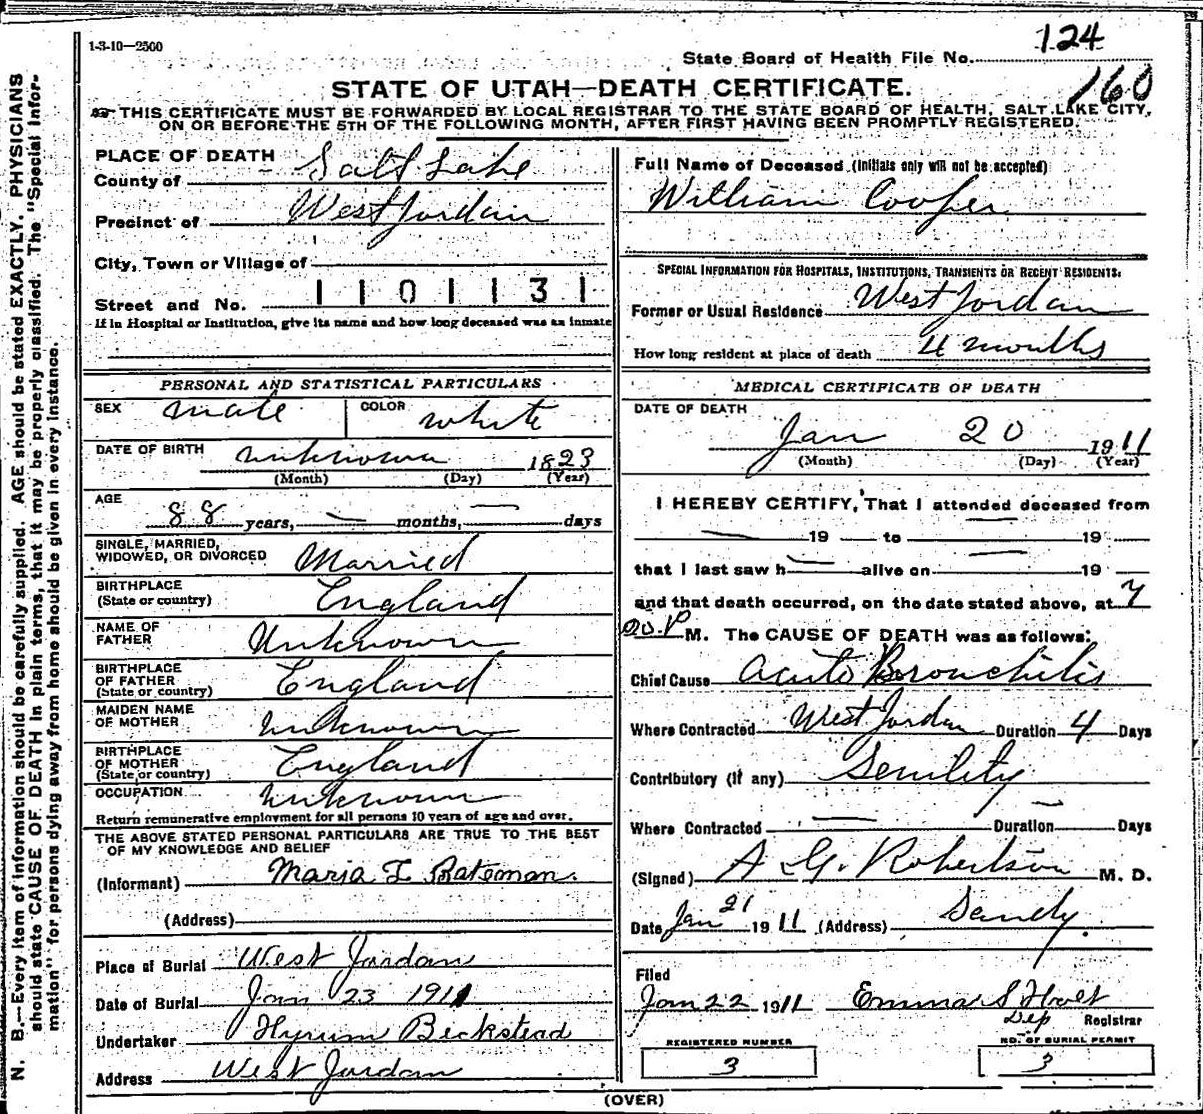 1-3-10—2500
124
State Board of Health File No.
160
STATE OF UTAH—DEATH CERTIFICATE.
THIS CERTIFICATE MUST BE FORWARDED BY LOCAL REGISTRAR TO THE STATE BOARD OF HEALTH, SALT LAKE CITY,
ON OR BEFORE THE 5TH OF THE FOLLOWING MONTH, AFTER FIRST HAVING BEEN PROMPTLY REGISTERED.
N. B.—Every item of information should be carefully supplied. AGE should be stated EXACTLY. PHYSICIANS
should state CAUSE OF DEATH in plain terms, that it may be properly classified. The "Special Infor-
mation" for persons dying away from home should be given in every instance.
PLACE OF DEATH
County of Salt Lake
Precinct of West Jordan
City, Town or Village of
Street and No. 1 1 0 1 1 3 1
If in Hospital or Institution, give its name and how long deceased was an inmate
PERSONAL AND STATISTICAL PARTICULARS
SEX male COLOR white
DATE OF BIRTH unknown 1823
(Month) (Day) (Year)
AGE
88 years, — months, — days
SINGLE, MARRIED,
WIDOWED, OR DIVORCED Married
BIRTHPLACE
(State or country) England
NAME OF
FATHER Unknown
BIRTHPLACE
OF FATHER
(State or country) England
MAIDEN NAME
OF MOTHER Unknown
BIRTHPLACE
OF MOTHER
(State or country) England
OCCUPATION Unknown
Return remunerative employment for all persons 10 years of age and over.
THE ABOVE STATED PERSONAL PARTICULARS ARE TRUE TO THE BEST
OF MY KNOWLEDGE AND BELIEF
(Informant) Maria L Bateman.
(Address)
Place of Burial West Jordan
Date of Burial Jan 23 1911
Undertaker Hyrum Beckstead
Address West Jordan
Full Name of Deceased (Initials only will not be accepted)
William Cooper
SPECIAL INFORMATION FOR HOSPITALS, INSTITUTIONS, TRANSIENTS OR RECENT RESIDENTS:
Former or Usual Residence West Jordan
How long resident at place of death 4 months
MEDICAL CERTIFICATE OF DEATH
DATE OF DEATH
Jan 20 1911
(Month) (Day) (Year)
I HEREBY CERTIFY, That I attended deceased from
— 19 to — 19
that I last saw h— alive on — 19
and that death occurred, on the date stated above, at 7
00 P M. The CAUSE OF DEATH was as follows:
Chief Cause Acute Bronchitis
Where Contracted West Jordan Duration 4 Days
Contributory (if any) Senility
Where Contracted — Duration — Days
(Signed) A G. Robertson M. D.
Date Jan 21 1911 (Address) Sandy.
Filed
Jan 22 1911 Emma S Holt
Dep Registrar
REGISTERED NUMBER
3
NO. OF BURIAL PERMIT
3
(OVER)